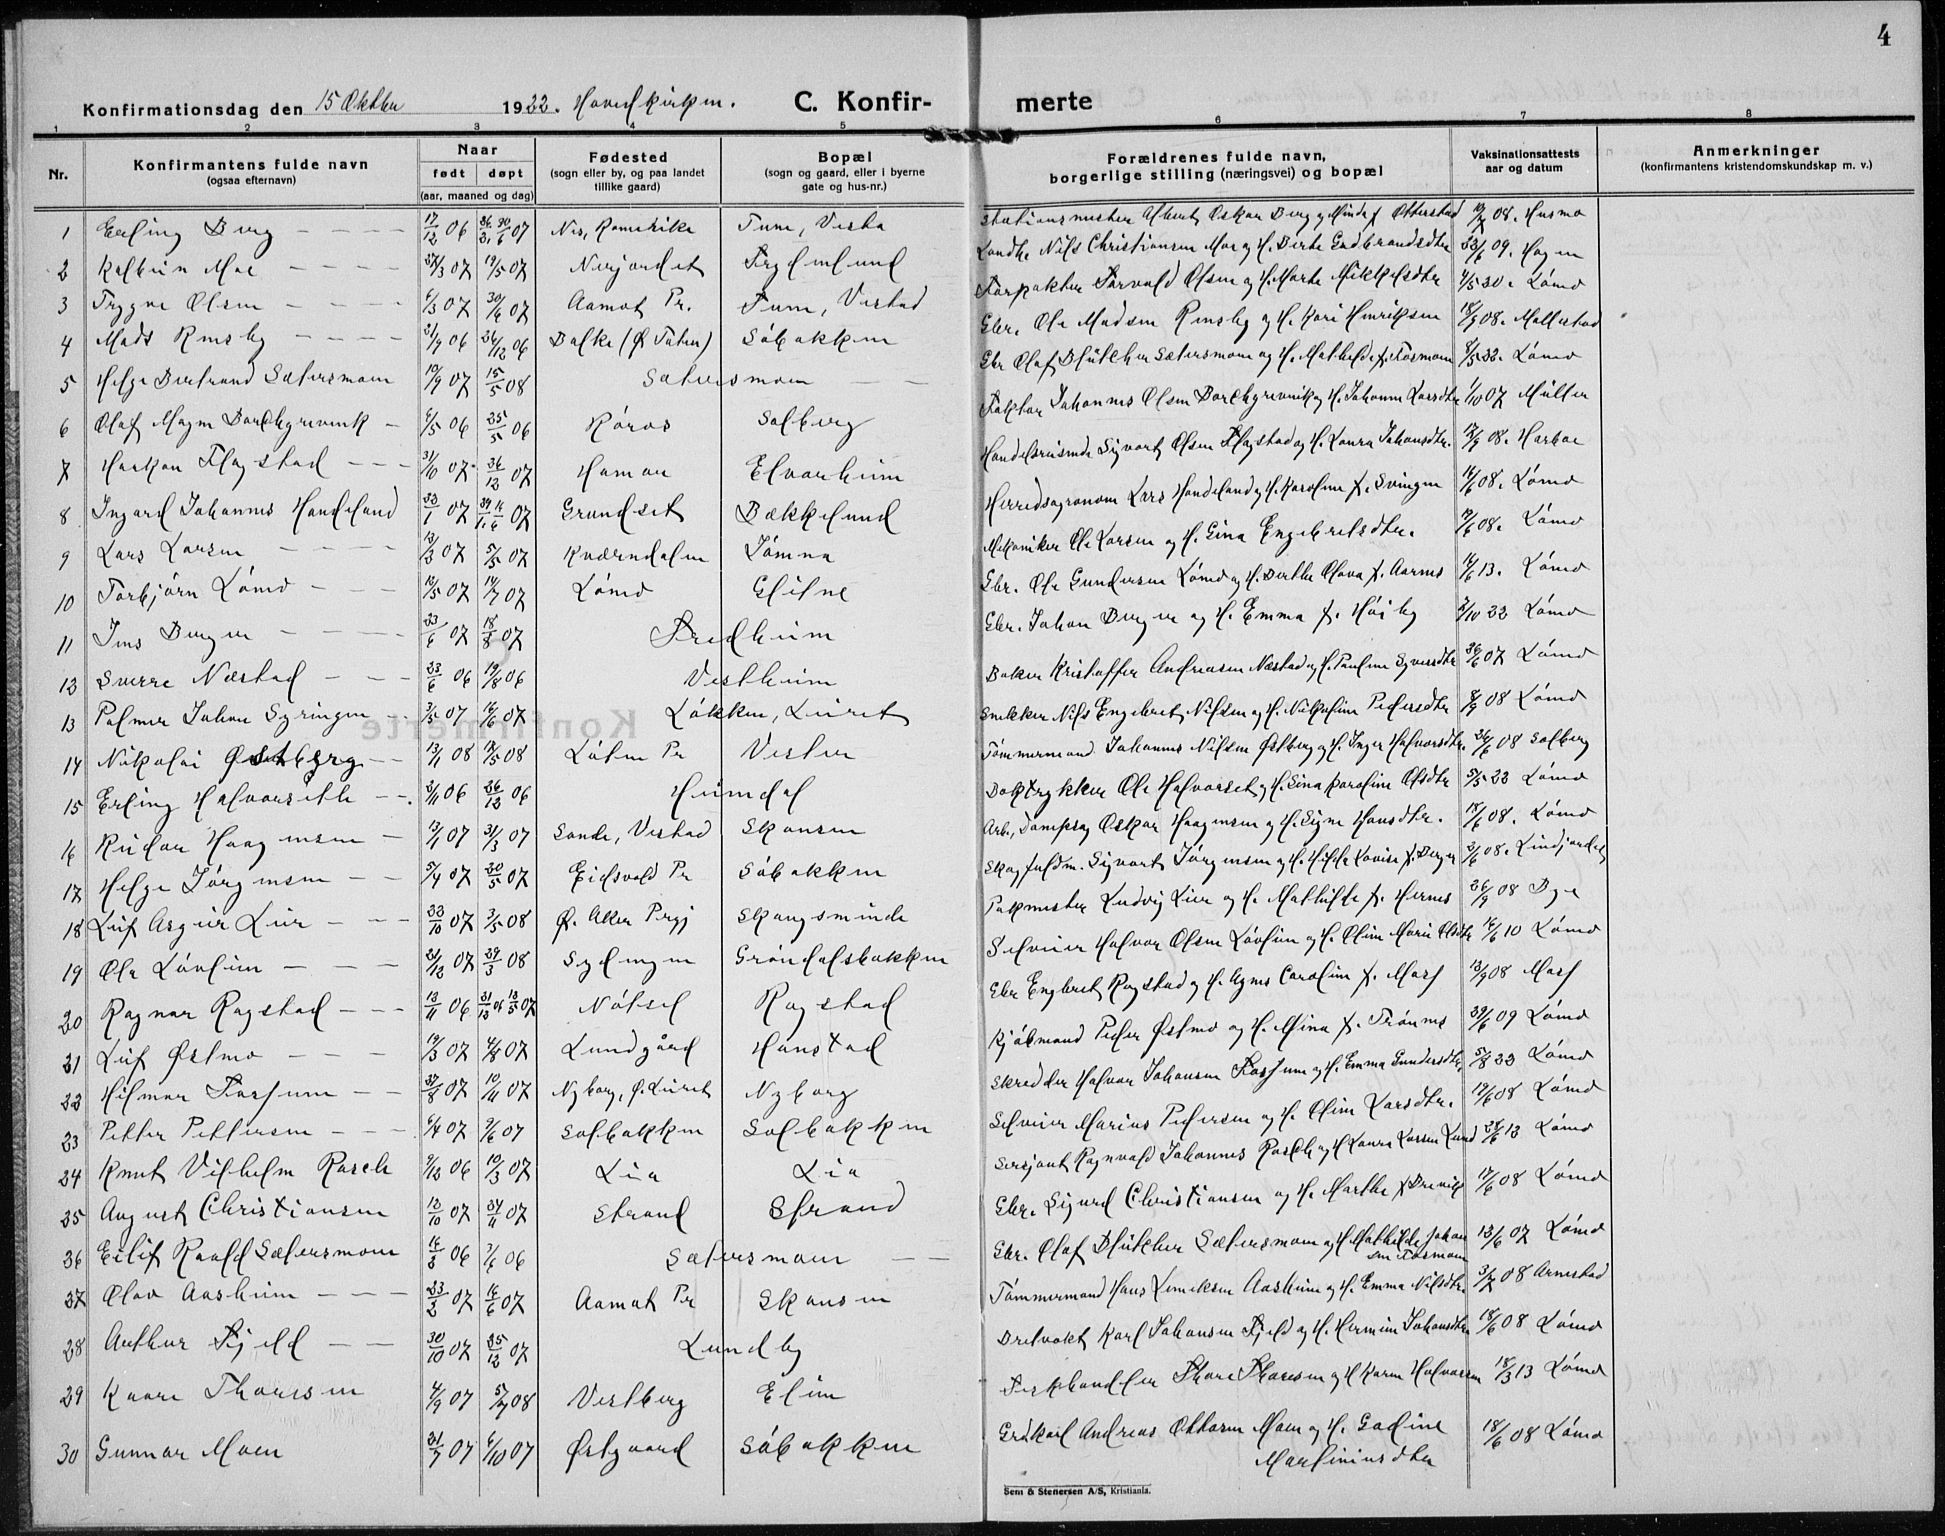 4
Konfirmationsdag den 15 Oktbr 1922. Hovedkirken. C. Konfir- merte
1 2 3 4 5 6 7 8
Nr. Konfirmantens fulde navn (ogsaa efternavn) Naar født døpt (aar, maaned og dag) Fødested (sogn eller by, og paa landet tillike gaard) Bopæl (sogn og gaard, eller i byerne gate og hus-nr.) Forældrenes fulde navn, borgerlige stilling (næringsvei) og bopæl Vaksinationsattests aar og datum Anmerkninger (konfirmantens kristendomskundskap m. v.)
1 Erling Berg 17/12 06 Nes, Romerike Stationsmester Albert Oskar Berg og Minda f. Otterstad 08. Husmo
2 Moe 07 19/5 07 Nerjordet Frydenlund Nils Christiansen Moe og H. Berte Gudbrandsdtr 09. Hagen
3 Trygve Olsen 6/3 07 30/6 07 Aamot Pr. Forpakter Torvald Olsen og H. Marte Mikkelsdtr 4/5 20. Lömo
4 Mads Rensby 21/9 06 26/12 06 Balke (Ø. Toten) Söbakken Gbr. Ole Madsen Rensby og H. Kari Henriksen 18/9 08. Mellestad
5 Helge Bertrand Sætersmoen 10/9 07 15/5 08 Sætersmoen Gbr Olaf Blütcher Sætersmoen og H. Mathilde f. Tosmoen 8/5 22. Lömo
6 Olaf Magne Borchgrevink 6/5 06 25/5 06 Röros Solberg Johannes Olsen Borchgrevink og H. Johanne Larsdtr 1/10 07 Müller
7 Haakon Flagstad 31/10 07 26/12 07 Hamar Elvarheim Handelsreisende Sigvart Olsen Flagstad og H. Laura Johansdtr. 08. Harboe
8 Ingard Johannes Handeland 22/1 07 Grundset Bækkelund Herredsagronom Lars Handeland og H. Karoline f. Svingen 14/6 08. Lömo
9 Lars Larsen 13/3 07 5/5 07 Kværndalen Jömna Mekaniker Ole Larsen og H. Gina Engebretsdtr. 17/6 08. Lömo
10 Torbjörn Lömo 10/5 07 14/7 07 Lömo Glitne Gbr. Ole Gundersen Lömo og H. Berthe Olava f. Aarnes 16/6 13. Lömo
11 Jens Berger 23/6 07 18/8 07 Fredheim Gbr. Johan Berger og H. Emma f. Höiby 2/10 22 Lömo
12 Sverre Næstad 23/6 06 19/8 06 Vestheim Baker Kristoffer Andreasen Næstad og H. Pauline Syversdtr 26/6 07 Lömo
13 Palmer Johan 3/5 07 16/6 07 Løkken, Leiret Snekker Nils Engebret Nilsen og H. Nikoline Pedersdtr 8/9 08 Lömo
14 Nikolai Østberg 13/1 08 17/5 08 Löten Pr Tömmermand Johannes Nilsen Østberg og H. Inger Halvorsdtr. 26/6 08 Solberg
15 Erling Halvorseth 2/11 06 26/12 06 Heimdal Boktrykker Ole Halvorset og H. Lina Karoline Olsdtr 5/5 22 Lömo
16 Reidar Haagensen 13/1 07 31/3 07 Sande, Vestad Skansen Arb., Dampsag Oskar Haagensen og H. Signe Hansdtr. 18/6 08. Lömo
17 Helge Jörgensen 5/4 07 20/5 07 Eidsvold Pr Söbakken Skogfuldm. Sigvart Jörgensen og H. Hilda Lovise f. Berger 3/6 08. Lindjordet
18 Leif Asgeir Lier 22/10 07 3/5 08 Ø. Aker Prgj Skougsminde Pakmester Ludvig Lier og H. Mathilde f. Hernes 26/9 08 Bye
19 Ole Lövlien 21/12 07 29/3 08 Grøndalsbakken Selveier Halvor Olsen Lövlien og H. Oline Marie Olsdtr 16/6 10 Lömo
20 Ragnar Rogstad 13/11 06 Nötsel Rogstad Gbr Engbret Rogstad og H. Agnes Caroline f. Mosf 13/9 08 Mosf
21 Leif Østmo 19/3 07 4/8 07 Lundgård Hanstad Kjøbmand Peder Østmo og H. Mina f. Trønnes 29/6 09 Lömo
22 Hilmar Fossum 27/8 07 10/11 07 Nyborg, Ø. Leiret Nyborg Skredder Halvor Johansen Fossum og H. Emma Gundersdtr. 5/8 22 Lömo
23 Petter Pettersen 6/4 07 9/6 07 Solbakken Solbakken Selveier Marius Pedersen og H. Oline Larsdtr. 17/6 08 Lömo
24 Knut Vilhelm Rasch 9/12 06 10/3 07 Lia Lia Sersjant Ragnvald Johannes Rasch og H. Laura Larsen Lund 28/6 12 Lömo
25 August Christiansen 12/10 07 24/11 07 Strand Strand Gbr. Sigurd Christiansen og H. Marthe f. 17/6 08 Lömo
26 Eilif Roald Sætersmoen 16/3 06 7/6 06 Sætersmoen Gbr. Olaf Blütcher Sætersmoen og H. Mathilde Johan sen Tosmoen 13/6 07 Lömo
27 Olav Aasheim 23/2 07 16/6 07 Aamot Pr Skansen Tömmermand Hans Aasheim og H. Emma Nilsdtr. 3/7 08 Arnestad
28 Arthur Fjeld 30/10 07 25/12 07 Lundby Karl Johansen Fjeld og H. Hermine Johansdtr 18/6 08 Lömo
29 Kaare Thoresen 4/9 07 5/7 08 Vestberg Elim Fiskhandler Thore Thoresen og H Karen Halvorsen 18/3 13 Lömo
30 Gunnar Moen 21/7 07 6/10 07 Østgaard Söbakken Andreas Ottosen Moen og H. Gadine Martiniusdtr 18/6 08 Lömo
Konfirmerte
Sem & Stenersen A/S, Kristiania.